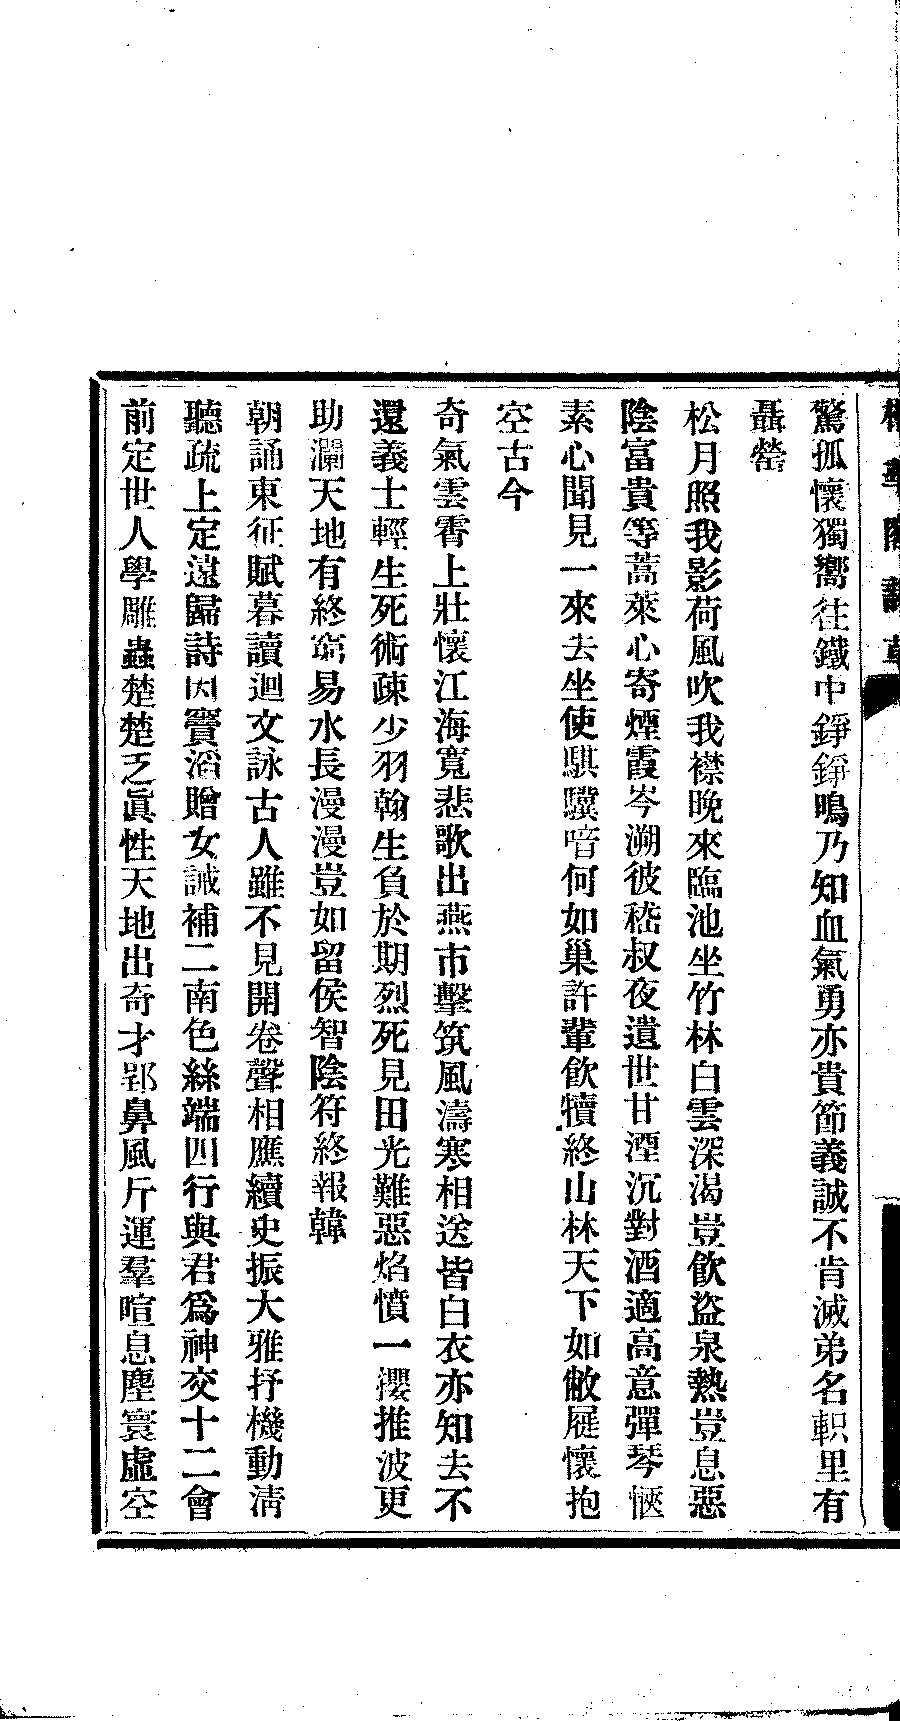 驚孤懷獨嚮往鐵中錚錚鳴乃知血氣勇亦貴節義誠不肯滅弟名軹里有
聶罃
松月照我影荷風吹我襟晚來臨池坐竹林白雲深渴豈飲盜泉熱豈息惡
陰富貴等蒿萊心寄煙霞岑溯彼嵇叔夜遺世甘湮沉對酒適高意彈琴愜
素心聞見一來去坐使騏驥喑何如巢許輩飲犢終山林天下如敝屣懷抱
空古今
奇氣雲霄上壯懷江海寬悲歌出燕市擊筑風濤寒相送皆白衣亦知去不
還義士輕生死術疎少羽翰生負於期烈死見田光難惡焰憤一攖推波更
助瀾天地有終窮易水長漫漫豈如留侯智陰符終報韓
朝誦東征賦暮讀迴文詠古人雖不見開卷聲相應續史振大雅抒機動淸
聽疏上定遠歸詩因竇滔贈女誡補二南色絲端四行與君爲神交十二會
前定世人學雕蟲楚楚乏眞性天地出奇才郢鼻風斤運羣喧息塵寰虛空